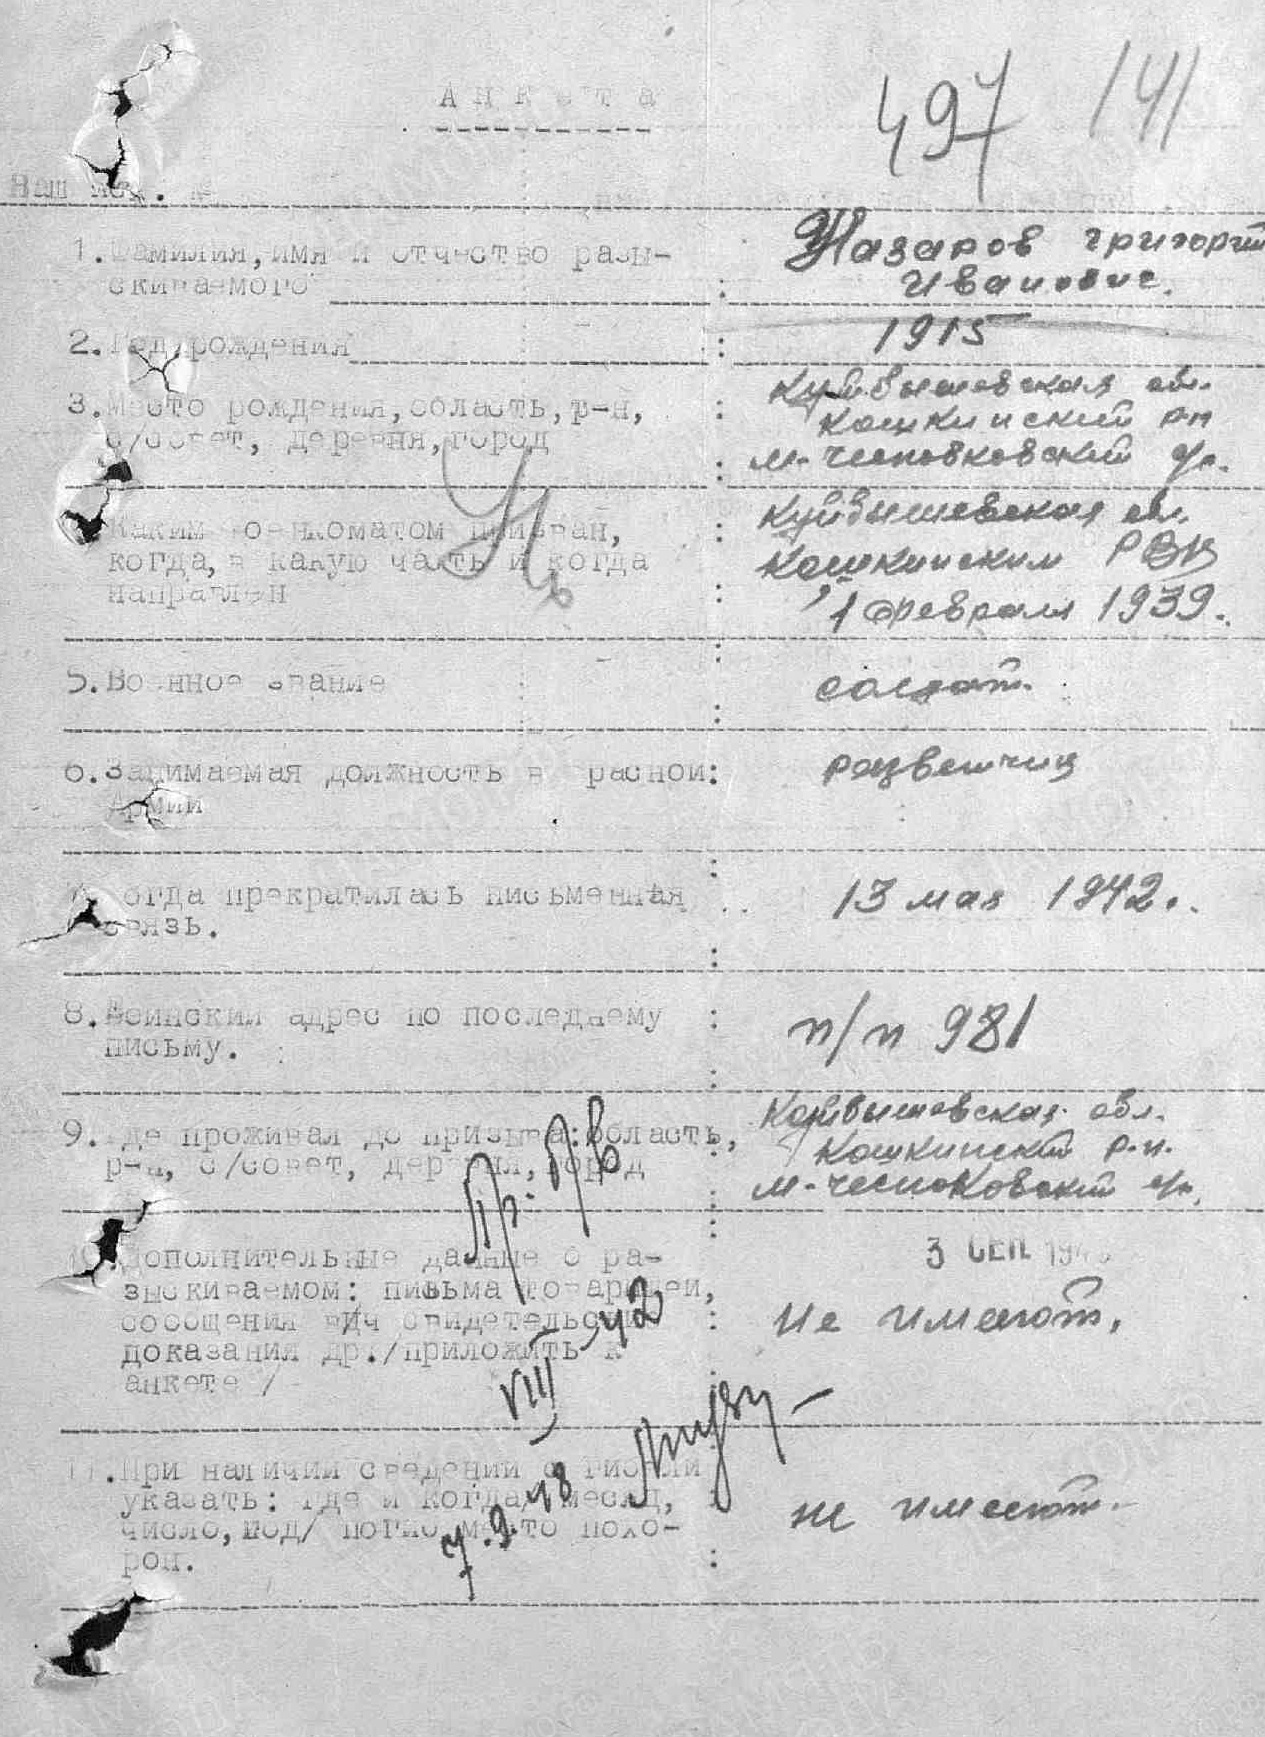 497 141
Анкета
Ваш исх. №
1. Фамилия, имя и отчество разы-
скиваемого
: Назаров григорий
Иванович.
2. Год рождения : 1915
3. Место рождения, область, р-н,
с/совет, деревня, город
: Куйбышевская обл.
Кошкинский р-н
м-чесноковский с/с.
Каким военкоматом призван,
когда, в какую часть и когда
направлен
: Куйбышевская обл.
Кошкинским РВК
1 февраля 1939.
5. Военное звание : солдат.
6. Занимаемая должность в Красной:
Армии
разветчик
Когда прекратилась письменная
связь.
13 мая 1942.
8. Воинский адрес по последнему :
письму.
п/п 981
9. Где проживал до призыва: область,
р-н, с/совет, деревня, город
Куйбышевская обл.
Кошкинский р.н.
м-чесноковский с/с.
3 СЕП 194
10. Дополнительные данные о ра-
зыскиваемом: письма товарищей,
сообщения в/ч свидетельские
доказания др./приложить к
анкете /
: Не имеют.
11. При наличии сведений о гибели
указать: где и когда/ месяц, :
число, год/ погиб место похо-
рон. :
не имеют.
Пр. п/в
VIII - 42
7.9.48